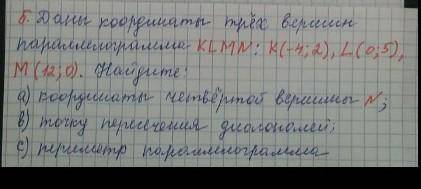 5. Даны координаты трёх вершин
параллелограмма KLMN: K(-4;2), L(0;5),
M(12;0). Найдите:
а) координаты четвёртой вершины N;
в) точку пересечения диагоналей;
с) периметр параллелограмма